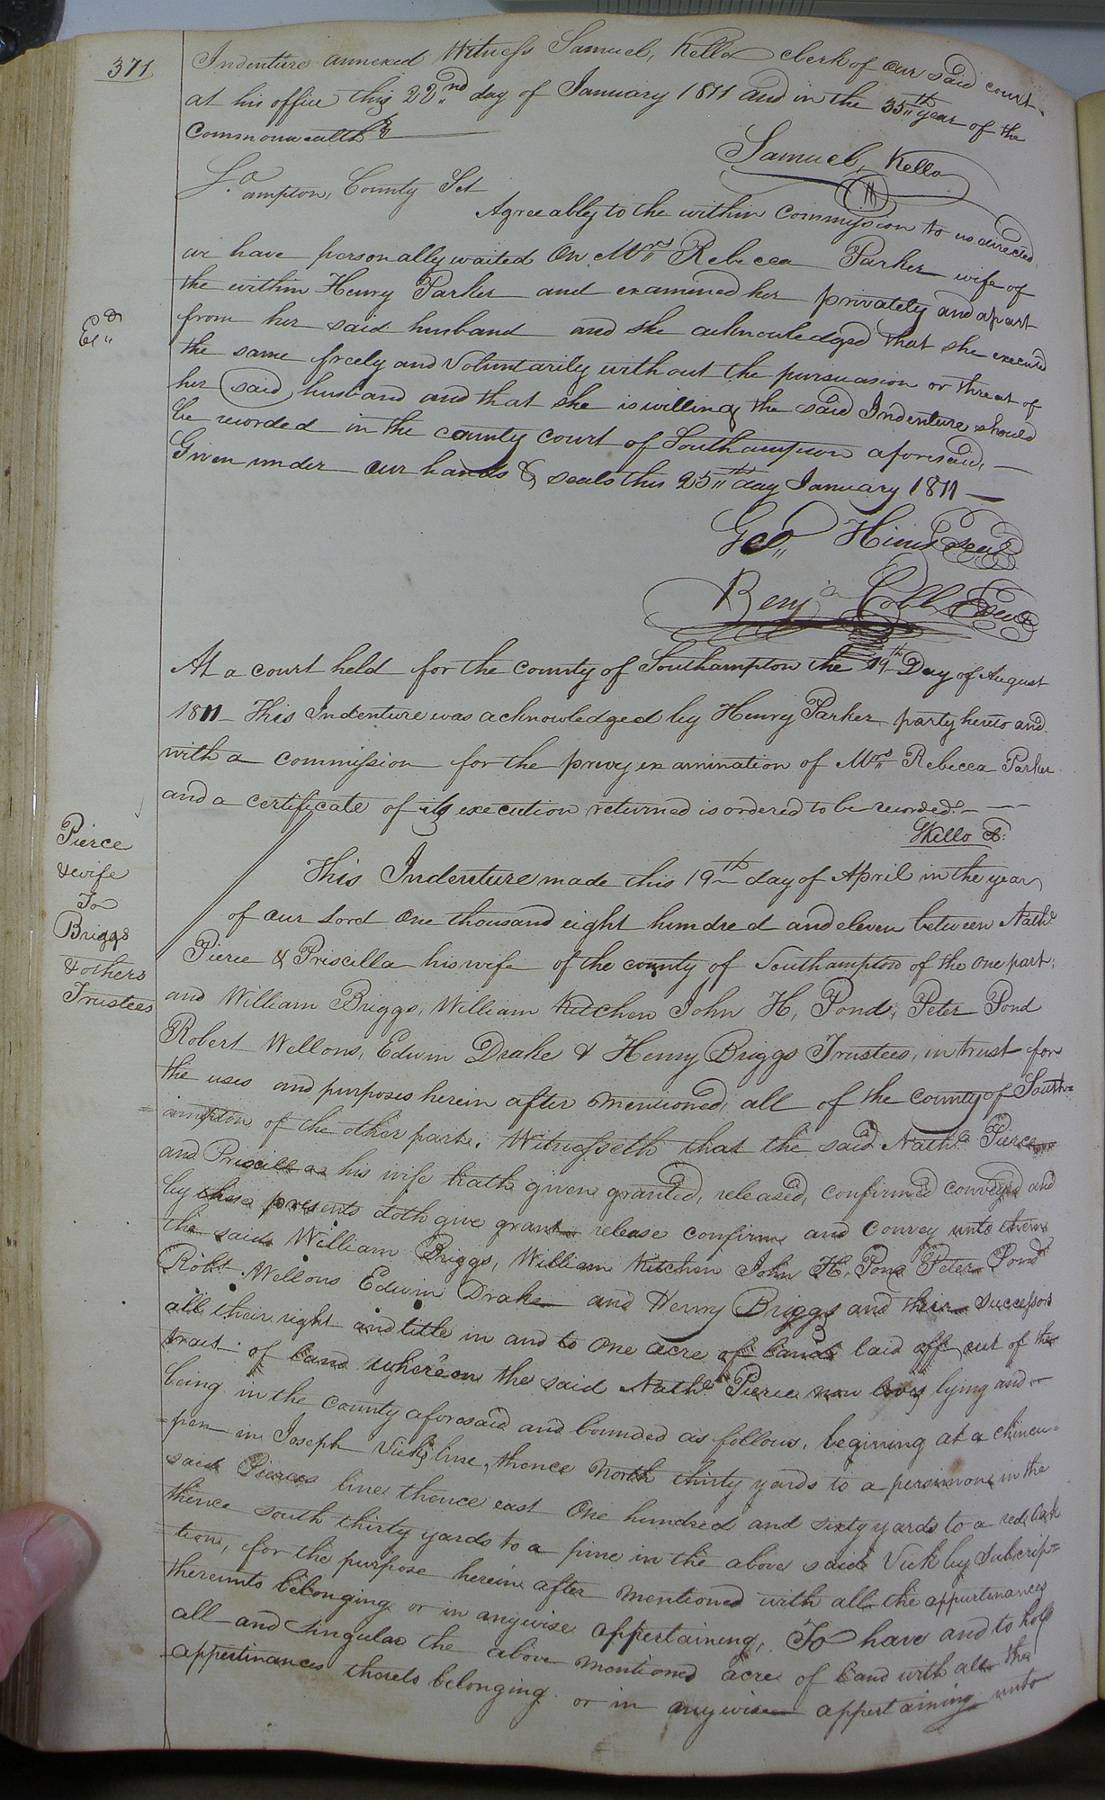 371
Indenture annexed Witness Samuel, Kello clerk of our said court
at his office this 22nd day of January 1811 and in the 35th year of the
Commonwealth
Samuel, Kello
So ampton, County Sct
Agreeably to the within Commission to us directed
we have personally waited On Mrs Rebecca Parker wife of
the within Henry Parker and examined her privately and apart
Ex
from her said husband and she acknowledged that she executed
the same freely and Voluntarily without the pursuasion or threat of
her said husband and that she is willing the said Indenture should
be recorded in the county court of Southampton aforesaid, —
Given under our hands & seals this 25th day January 1811 —
Geo Seal
Benj Seal
At a court held for the county of Southampton the 19th Day of August
1811 This Indenture was acknowledged by Henry Parker party hereto and
with a commission for the privy examination of Mrs Rebecca Parker
and a certificate of its execution returned is ordered to be recorded —
Kello
Pierce
& wife
To
Briggs
& others
Trustees
This Indenture made this 19th day of April in the year
of our Lord One thousand eight hundred and eleven between Nathl
Pierce & Priscilla his wife of the county of Southampton of the one part
and William Briggs, William Kitchen John H, Pond, Peter Pond
Robert Wellons, Edwin Drake & Henry Briggs Trustees, in trust for
the uses and purposes herein after mentioned, all of the county of South=
=ampton of the other part. Witnesseth that the said Nathl Pierce
and Priscilla his wife hath given granted, released, confirmed conveyed and
by these presents doth give grant release confirm and convey unto them
the said William Briggs, William Kitchen John H. Pond Peter Pond
Robt Wellons Edwin Drake and Henry Briggs and their successors
all their right and title in and to One acre of Land laid off out of the
tract of Land whereon the said Nathl Pierce now lives lying and
being in the county aforesaid and bounded as follows, begining at a chincu=
=pen in Joseph Vicks line, thence North thirty yards to a persimon in the
said Pierces line thence east One hundred and sixty yards to a red oak
thence south thirty yards to a pine in the above said Vick by Subcrip=
=tion, for the purpose herein after mentioned with all the appurtinances
thereunto belonging or in anywise appertaining, To have and to hold
all and singular the above mentioned acre of Land with all the
appertinances thereto belonging or in anywise appertaining unto